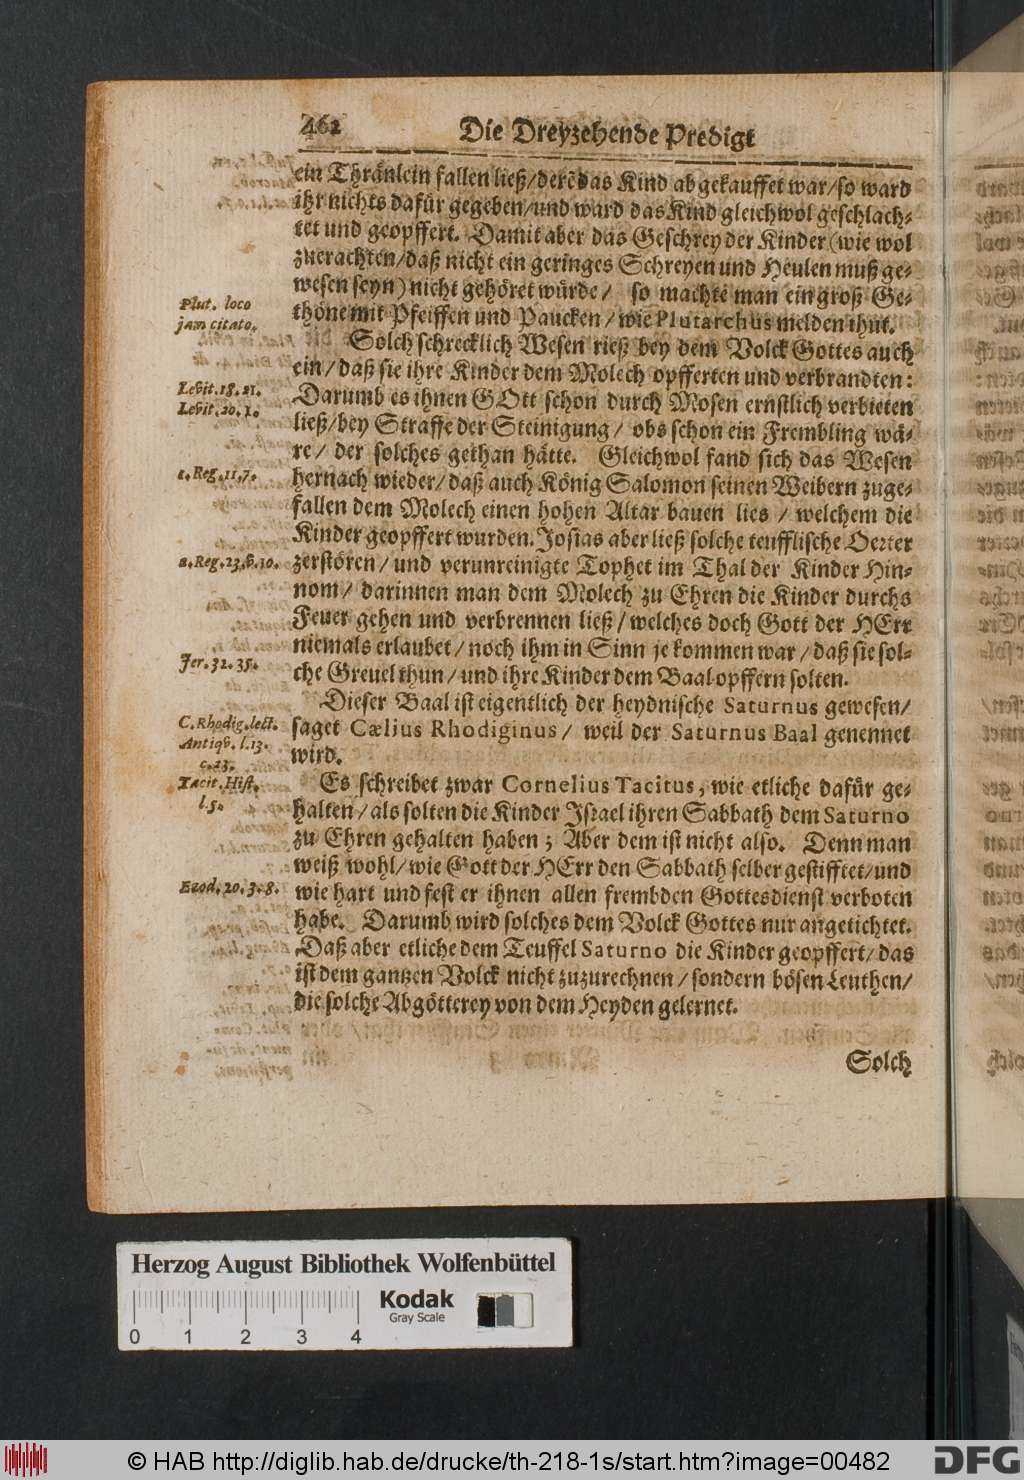 462
Die Dreyzehende Predigt
ein Thränlein fallen ließ/derē das Kind abgekauffet war/so ward
ihr nichts dafür gegeben/und ward das Kind gleichwol geschlach-
tet und geopffert. Damit aber das Geschrey der Kinder (wie wol
zuerachten/daß nicht ein geringes Schreyen und Heulen muß ge-
wesen seyn) nicht gehöret würde/ so machte man ein groß Ge-
thöne mit Pfeiffen und Paucken/wie Plutarchus melden thut.
Plut. loco
jam citato.
Solch schrecklich Wesen rieß bey dem Volck Gottes auch
ein/daß sie ihre Kinder dem Molech opfferten und verbrandten:
Darumb es ihnen GOtt schon durch Mosen ernstlich verbieten
ließ/bey Straffe der Steinigung/ obs schon ein Frembling wä-
re/ der solches gethan hätte. Gleichwol fand sich das Wesen
hernach wieder/daß auch König Salomon seinen Weibern zuge-
fallen dem Molech einen hohen Altar bauen lies / welchem die
Kinder geopffert wurden. Josias aber ließ solche teufflische Oerter
zerstören/ und verunreinigte Tophet im Thal der Kinder Hin-
nom/ darinnen man dem Molech zu Ehren die Kinder durchs
Feuer gehen und verbrennen ließ/welches doch Gott der HErr
niemals erlaubet/noch ihm in Sinn je kommen war/daß sie sol-
che Greuel thun/und ihre Kinder dem Baal opffern solten.
Levit. 18. 21.
Levit. 20. 1.
1. Reg. 11, 7.
2. Reg. 23. v. 10.
Jer. 32. 35.
Dieser Baal ist eigentlich der heydnische Saturnus gewesen/
saget Cælius Rhodiginus/ weil der Saturnus Baal genennet
wird.
C. Rhodig. lect.
Antiqv. l. 13.
c. 23.
Es schreibet zwar Cornelius Tacitus, wie etliche dafür ge-
halten/als solten die Kinder Israel ihren Sabbath dem Saturno
zu Ehren gehalten haben; Aber dem ist nicht also. Denn man
weiß wohl/wie Gott der HErr den Sabbath selber gestifftet/und
wie hart und fest er ihnen allen frembden Gottesdienst verboten
habe. Darumb wird solches dem Volck Gottes nur angetichtet.
Daß aber etliche dem Teuffel Saturno die Kinder geopffert/das
ist dem gantzen Volck nicht zuzurechnen/sondern bösen Leuthen/
die solche Abgötterey von dem Heyden gelernet.
Tacit. Hist.
l. 5.
Exod. 20. 3. 8.
Solch
Herzog August Bibliothek Wolfenbüttel
Kodak
Gray Scale
0 1 2 3 4
© HAB http://diglib.hab.de/drucke/th-218-1s/start.htm?image=00482
DFG